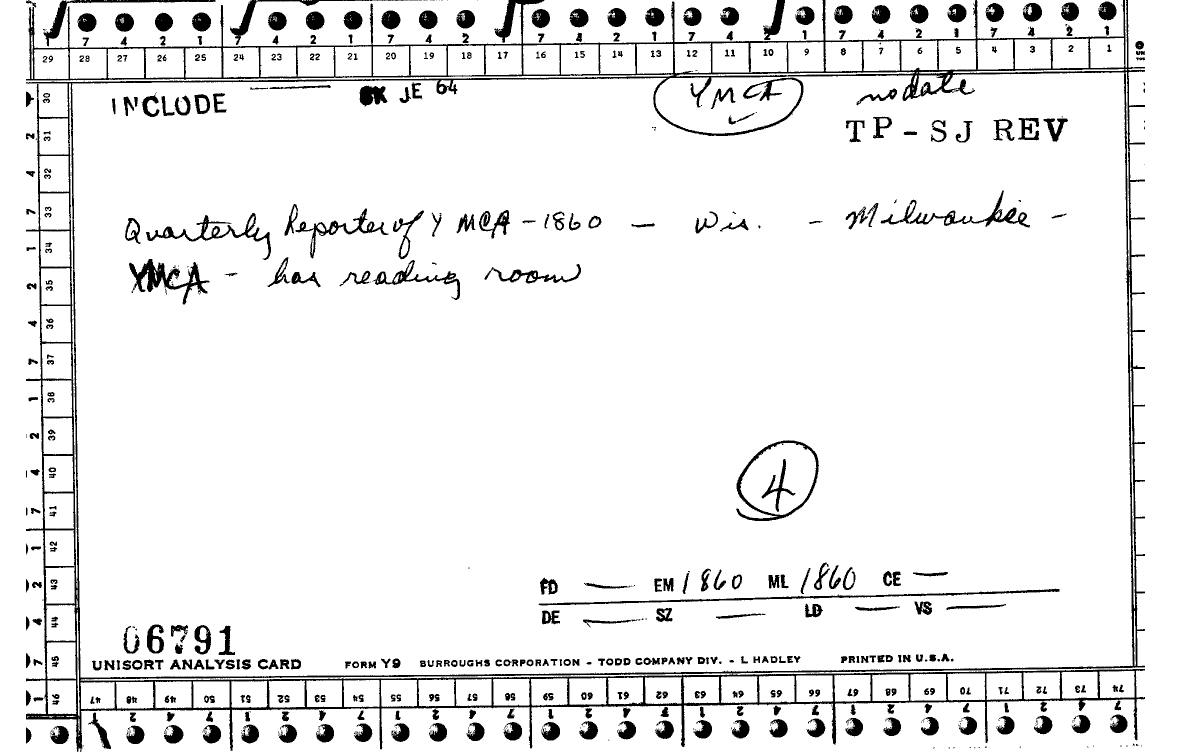 7 4 2 1 7 4 2 1 7 4 2 17 7 4 2 1 7 4 2 1 7 4 2 1 7 4 2 1
29 28 27 26 25 24 23 22 21 20 19 18 17 16 15 14 13 12 11 10 9 8 7 6 5 4 3 2 1
INCLUDE JE 64 YMCA no date
TP-SJ REV
Quarterly Reporter of YMCA - 1860 - Wis. - Milwaukee -
YMCA - has reading room
4
FD — EM 1860 ML 1860 CE —
DE — SZ — LD — VS —
06791
UNISORT ANALYSIS CARD FORM Y9 BURROUGHS CORPORATION - TODD COMPANY DIV. - L HADLEY PRINTED IN U.S.A.
30
2 31
4 32
7 33
1 34
2 35
4 36
7 37
1 38
2 39
4 40
7 41
1 42
2 43
4 44
7 45
1 46
47 48 49 50 51 52 53 54 55 56 57 58 59 60 61 62 63 64 65 66 67 68 69 70 71 72 73 74
1 2 4 7 1 2 4 7 1 2 4 7 1 2 4 7 1 2 4 7 1 2 4 7 1 2 4 7